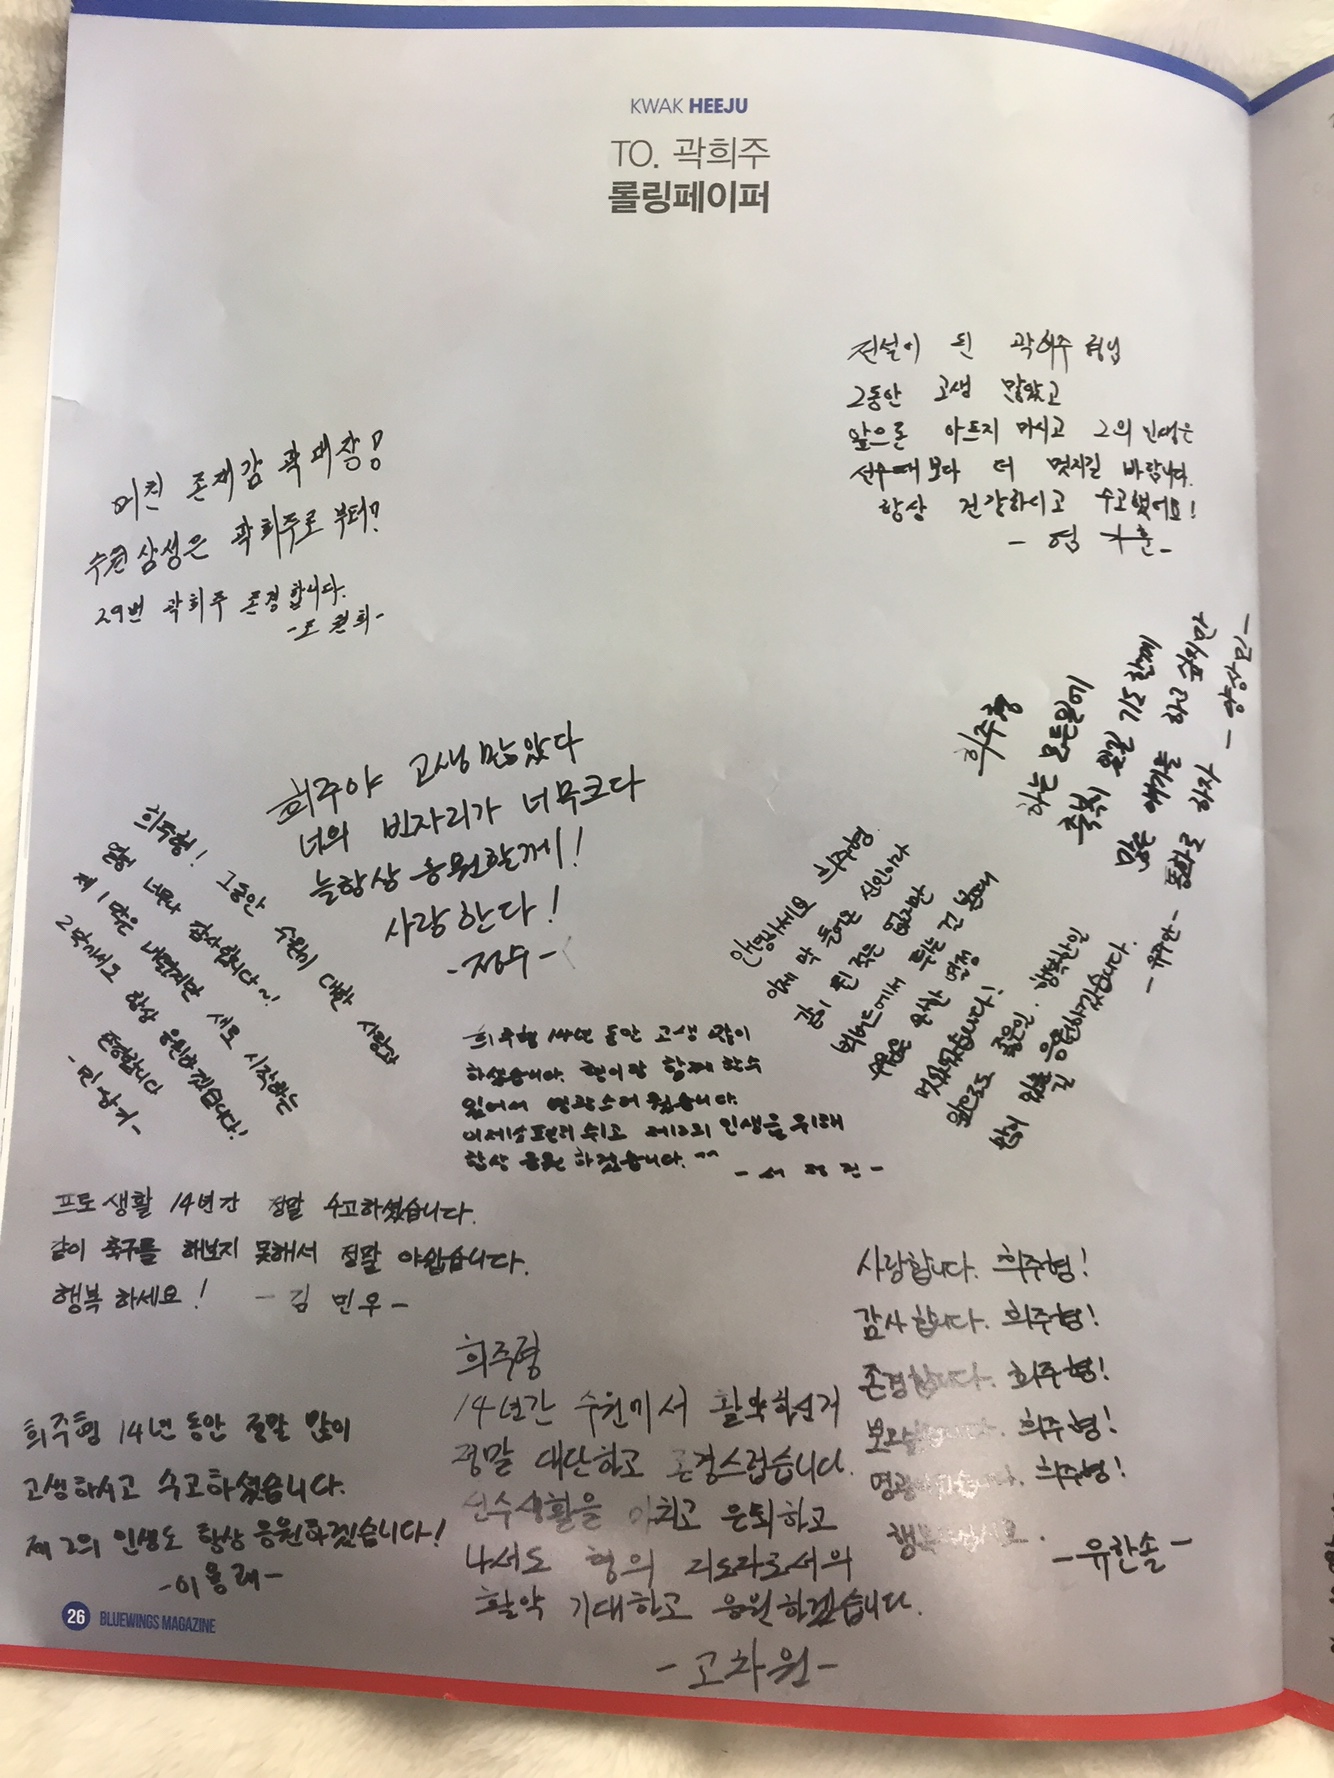 KWAK HEEJU
TO. 곽희주
롤링페이퍼
전설이 된 곽희주 형님
그동안 고생 많았고
앞으론 아프지 마시고 2의 인생은
선수때보다 더 멋지길 바랍니다.
항상 건강하시고 수고했어요!
- 염기훈 -
미친 존재감 곽대장!
수원삼성은 곽희주로 부터?
29번 곽희주 존경합니다.
- 조원희 -
희주형
하는 모든일에
축복이 있길 기도할께
많은 얘기는
하자
희주야 고생많았다
너의 빈자리가 너무크다
늘항상 응원할께!
사랑한다!
- 정수 -
희주형! 그동안 수원에 대한 사랑과
너무나 감사합니다~!
제 1막은 내렸지만 새로 시작하는
2막에서도 항상 응원하겠습니다!
존경합니다
- 민상기 -
안녕하세요 희주형
이제 막 들어온 신인이라
같이 뛴 적은 없지만
빅버드에서 뛰는 긴
열정
멋있었습니다!
앞으로도 좋은일, 행복한일
응원하겠습니다.
- 유주안 -
희주형 14년 동안 고생 많이
하셨습니다. 형이랑 함께 할수
있어서 영광스러웠습니다.
이제 쉬고 제2의 인생을 위해
항상 응원 하겠습니다. ^^
- 서정진 -
프로생활 14년간 정말 수고하셨습니다.
같이 축구를 해보지 못해서 정말 아쉽습니다.
행복하세요! - 김민우 -
사랑합니다. 희주형!
감사합니다. 희주형!
존경합니다. 희주형!
희주형!
희주형!
- 유한솔 -
희주형
14년간 수원에서 활약하신거
정말 대단하고 존경스럽습니다.
선수생활을 마치고 은퇴하고
나서도 형의 지도자로서의
활약 기대하고 응원하겠습니다.
- 고차원 -
희주형 14년 동안 정말 많이
고생하시고 수고하셨습니다.
제 2의 인생도 항상 응원하겠습니다!
- 이용래 -
26 BLUEWINGS MAGAZINE